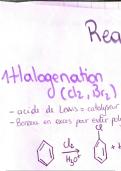 Rea
1. Halogenation
(Cl2, Br2)
- acide de Lewis = catalyseur
- Benzène en excès pour éviter poly
Cl
Cl2
H3O+
+